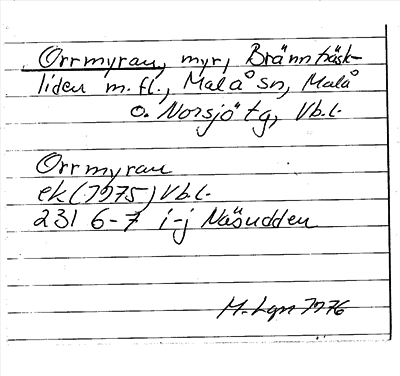 Orrmyran, myr, Brännträsk-
liden m.fl., Malå sn, Malå
o. Norsjö tg, Vb.l.
Orrmyran
ek (1975) Vb.l.
231 6-7 i-j Näsudden
M. Lgn 1976